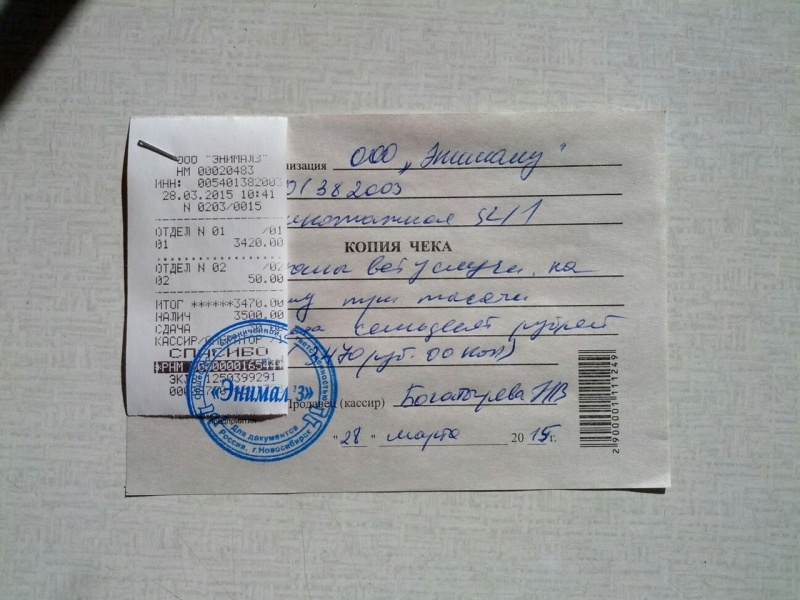 ООО "ЭНИМАЛЗ"
НМ 00020483
ИНН: 005401382003
28.03.2015 10:41
N 0203/0015
ОТДЕЛ N 01 /01
01 3420.00
ОТДЕЛ N 02 /02
02 50.00
ИТОГ ******3470.00
НАЛИЧ 3500.00
СДАЧА
КАССИР/
СПАСИБО
*РНМ
ЭКЛ 1250399291
низация ООО „Энималз"
01382003
54/1
КОПИЯ ЧЕКА
вет услуги, на
му три тысячи
семьдесят рублей
3470 руб. 00 коп)
Продавец (кассир) Богатырева НВ
"28" марта 2015г.
«Энимал З»
для документов
Россия, г.Новосибирск
2900001111249